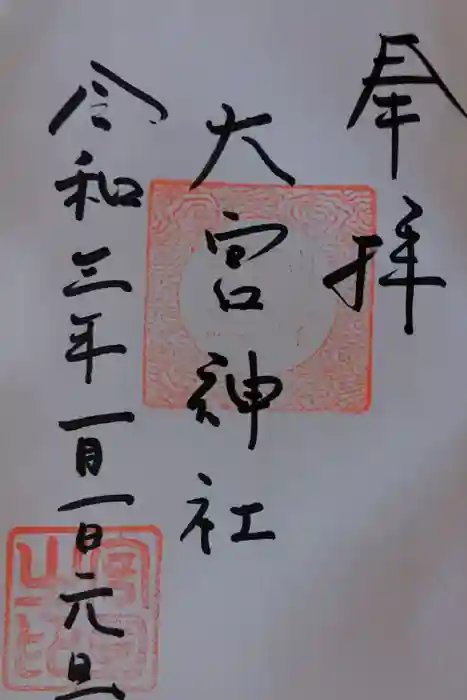 奉拝
大宮神社
令和三年一月一日元旦